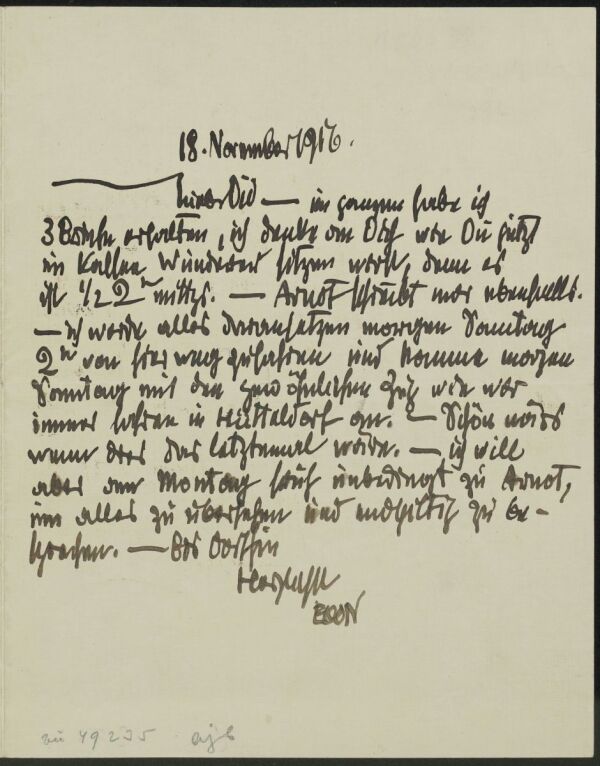 18. November 1916.
Liebe Did — im ganzen habe ich
3 Briefe erhalten, ich denke an Dich wie Du jetzt
im Kaffee Wunderer sitzen wirst, denn es
ist ½ 2 h mittgs. — Arnot schreibt mir ebenfalls.
— ich werde alles daransetzen morgen Samstag
2 h von hier weg zu fahren und komme morgen
Samstag mit den gewöhnlichen Zug wie wir
immer fahren in Hütteldorf an. — Schön wärs
wenn dies das letztemal wäre. — ich will
aber am Montag früh unbedingt zu Arnot,
um alles zu übersehen und endgiltig zu be-
sprechen. — Bis dorthin
Herzlichst
EGON
zu 49235